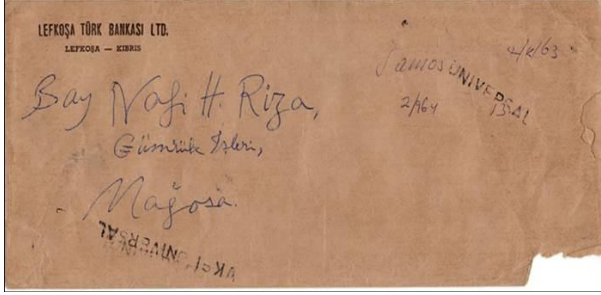 LEFKOŞA TÜRK BANKASI LTD.
LEFKOŞA — KIBRIS
Bay Nafi H. Riza,
Gümrük İşleri,
Mağosa.
UNIVERSAL
2/964
UNIVERSAL